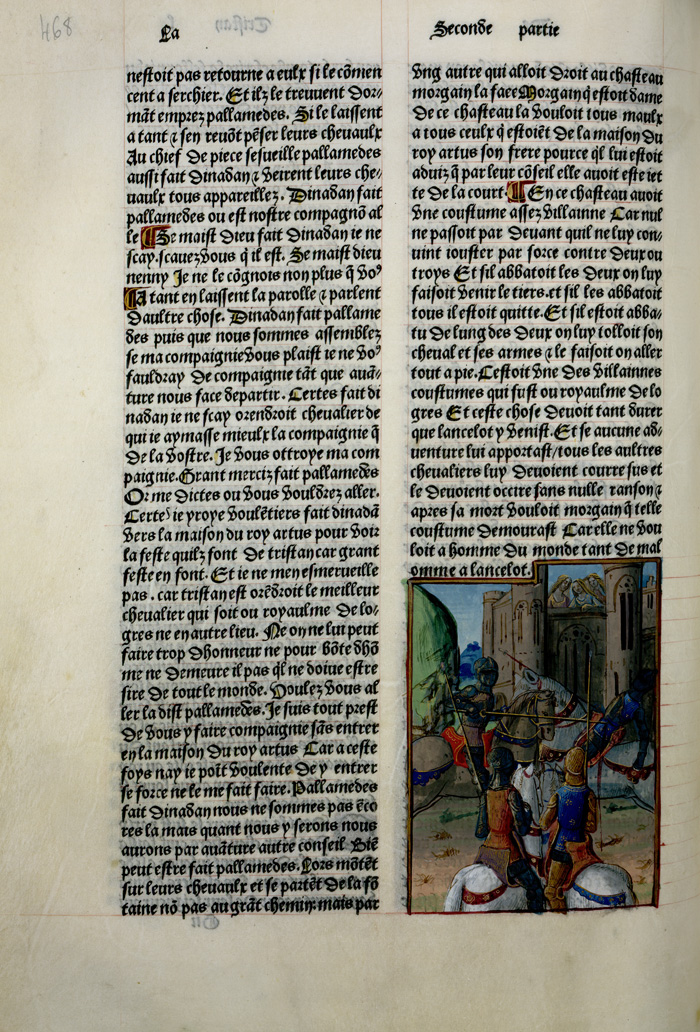 468
La
Seconde partie
nestoit pas retourne a eulx si le cōmen
cent a serchier. Et ilz le treuuent dor-
māt emprez pallamedes. Si le laissent
a tant ⁊ sen reuōt pēser leurs cheuaulx
Au chief de piece sesueille pallamedes
aussi fait dinadan ⁊ veirent leurs che-
uaulx tous appareillez. Dinadan fait
pallamedes ou est nostre compagnō al
le ¶ Se maist dieu fait dinadan ie ne
scay.scauez vous q̄ il est. Se maist dieu
nenny Je ne le cōgnois non plus q̄ voꝰ
¶ A tant en laissent la parolle ⁊ parlent
daultre chose. Dinadan fait pallame
des puis que nous sommes assemblez
se ma compaignie vous plaist ie ne voꝰ
fauldray de compaignie tāt que auā-
ture nous face departir. Certes fait di
nadan ie ne scay orendroit cheualier de
qui ie aymasse mieulx la compaignie q̄
de la vostre. Je vous ottroye ma com
paignie. Grant merciz fait pallamedes
Or me dictes ou vous vouldrez aller.
Certeˢ ie yroye voulētiers fait dinadā
vers la maison du roy artus pour voir
la feste quilz font de tristan car grant
feste en font. Et ie ne men esmerueille
pas. car tristan est orēdroit le meilleur
cheualier qui soit ou royaulme de lo-
gres ne en autre lieu. Ne on ne lui peut
faire trop dhonneur ne pour bōte dhō
me ne demeure il pas q̄l ne doiue estre
sire de tout le monde. Voulez vous al
ler la dist pallamedes. Je suis tout prest
de vous y faire compaignie sās entrer
en la maison du roy artus Car a ceste
foys nay ie poīt voulente de y entrer
se force ne le me fait faire. Pallamedes
fait dinadan nous ne sommes pas ēco
res la mais quant nous y serons nous
aurons par auāture autre conseil Biē
peut estre fait pallamedes. Lors mōtēt
sur leurs cheuaulx et se partēt de la fō
taine nō pas au grāt chemin: mais par
vng autre qui alloit droit au chasteau
morgain la faee Morgain q̄ estoit dame
de ce chasteau la vouloit tous maulx
a tous ceulx q̄ estoiēt de la maison du
roy artus son frere pource q̄l lui estoit
aduiz q̄ par leur cōseil elle auoit este iet
te de la court. ¶ En ce chasteau auoit
vne coustume assez villainne Car nul
ne passoit par deuant quil ne luy con-
uint iouster par force contre deux ou
troys Et sil abbatoit les deux on luy
faisoit venir le tiers.et sil les abbatoit
tous il estoit quitte. Et sil estoit abba-
tu de lung des deux on luy tolloit son
cheual et ses armes ⁊ le faisoit on aller
tout a pie. Cestoit vne des villainnes
coustumes qui fust ou royaulme de lo
gres Et ceste chose deuoit tant durer
que lancelot y venist. Et se aucune ad-
uenture lui apportast/tous les aultres
cheualiers luy deuoient courre sus et
le deuoient occire sans nulle ranson ⁊
apres sa mort vouloit morgain q̄ telle
coustume demourast Car elle ne vou
loit a homme du monde tant de mal
omme a lancelot.